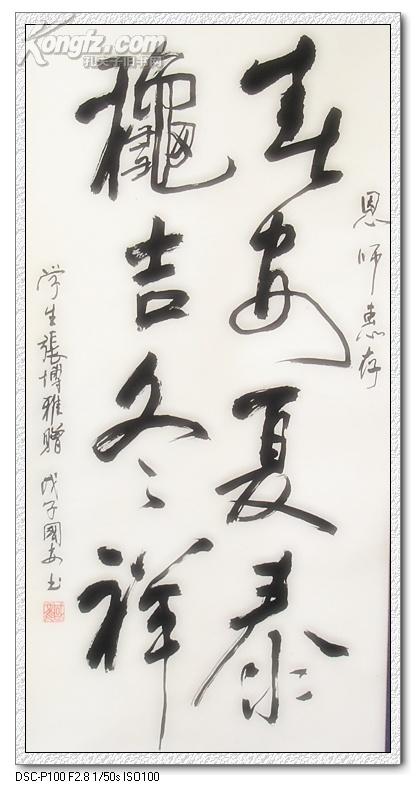 恩师惠存
春安夏泰
龝吉冬祥
学生張博雅赠 戊子國安书
Kongfz.com
孔夫子旧书网
DSC-P100 F2.8 1/50s ISO100